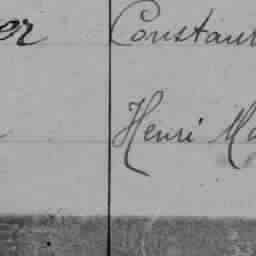 er Constant
Henri Ma